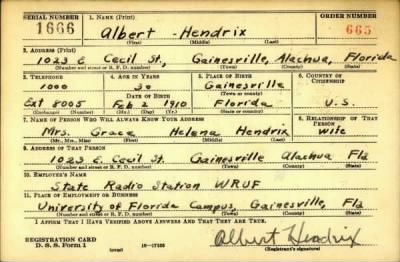 SERIAL NUMBER 1. NAME (Print) ORDER NUMBER
1666 Albert Hendrix 665
(First) (Middle) (Last)
2. ADDRESS (Print)
1023 E Cecil St., Gainesville, Alachua, Florida
(Number and street or R. F. D. number) (Town) (County) (State)
3. TELEPHONE 4. AGE IN YEARS 5. PLACE OF BIRTH 6. COUNTRY OF CITIZENSHIP
1000 30 Gainesville
DATE OF BIRTH (Town or county)
Ext 8005 Feb 2 1910 Florida U.S.
(Exchange) (Number) (Mo.) (Day) (Yr.) (State or country)
7. NAME OF PERSON WHO WILL ALWAYS KNOW YOUR ADDRESS 8. RELATIONSHIP OF THAT PERSON
Mrs. Grace Helena Hendrix wife
(Mr., Mrs., Miss) (First) (Middle) (Last)
9. ADDRESS OF THAT PERSON
1023 E. Cecil St. Gainesville Alachua Fla
(Number and street or R. F. D. number) (Town) (County) (State)
10. EMPLOYER'S NAME
State Radio Station WRUF
11. PLACE OF EMPLOYMENT OR BUSINESS
University of Florida Campus, Gainesville, Fla
(Number and street or R. F. D. number) (Town) (County) (State)
I AFFIRM THAT I HAVE VERIFIED ABOVE ANSWERS AND THAT THEY ARE TRUE.
REGISTRATION CARD
D. S. S. Form 1 (over) Albert Hendrix
(Registrant's signature)